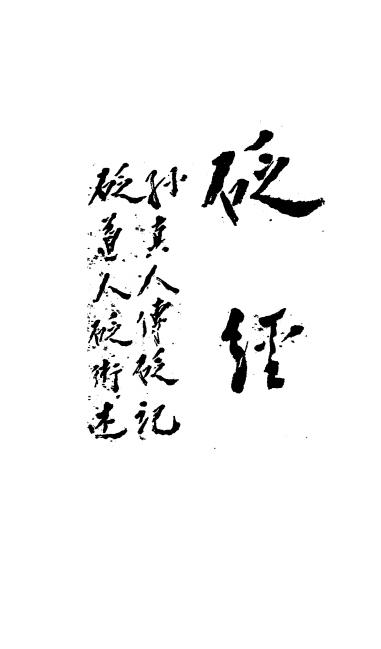 砭經
孫真人傳砭記
砭道人砭術述